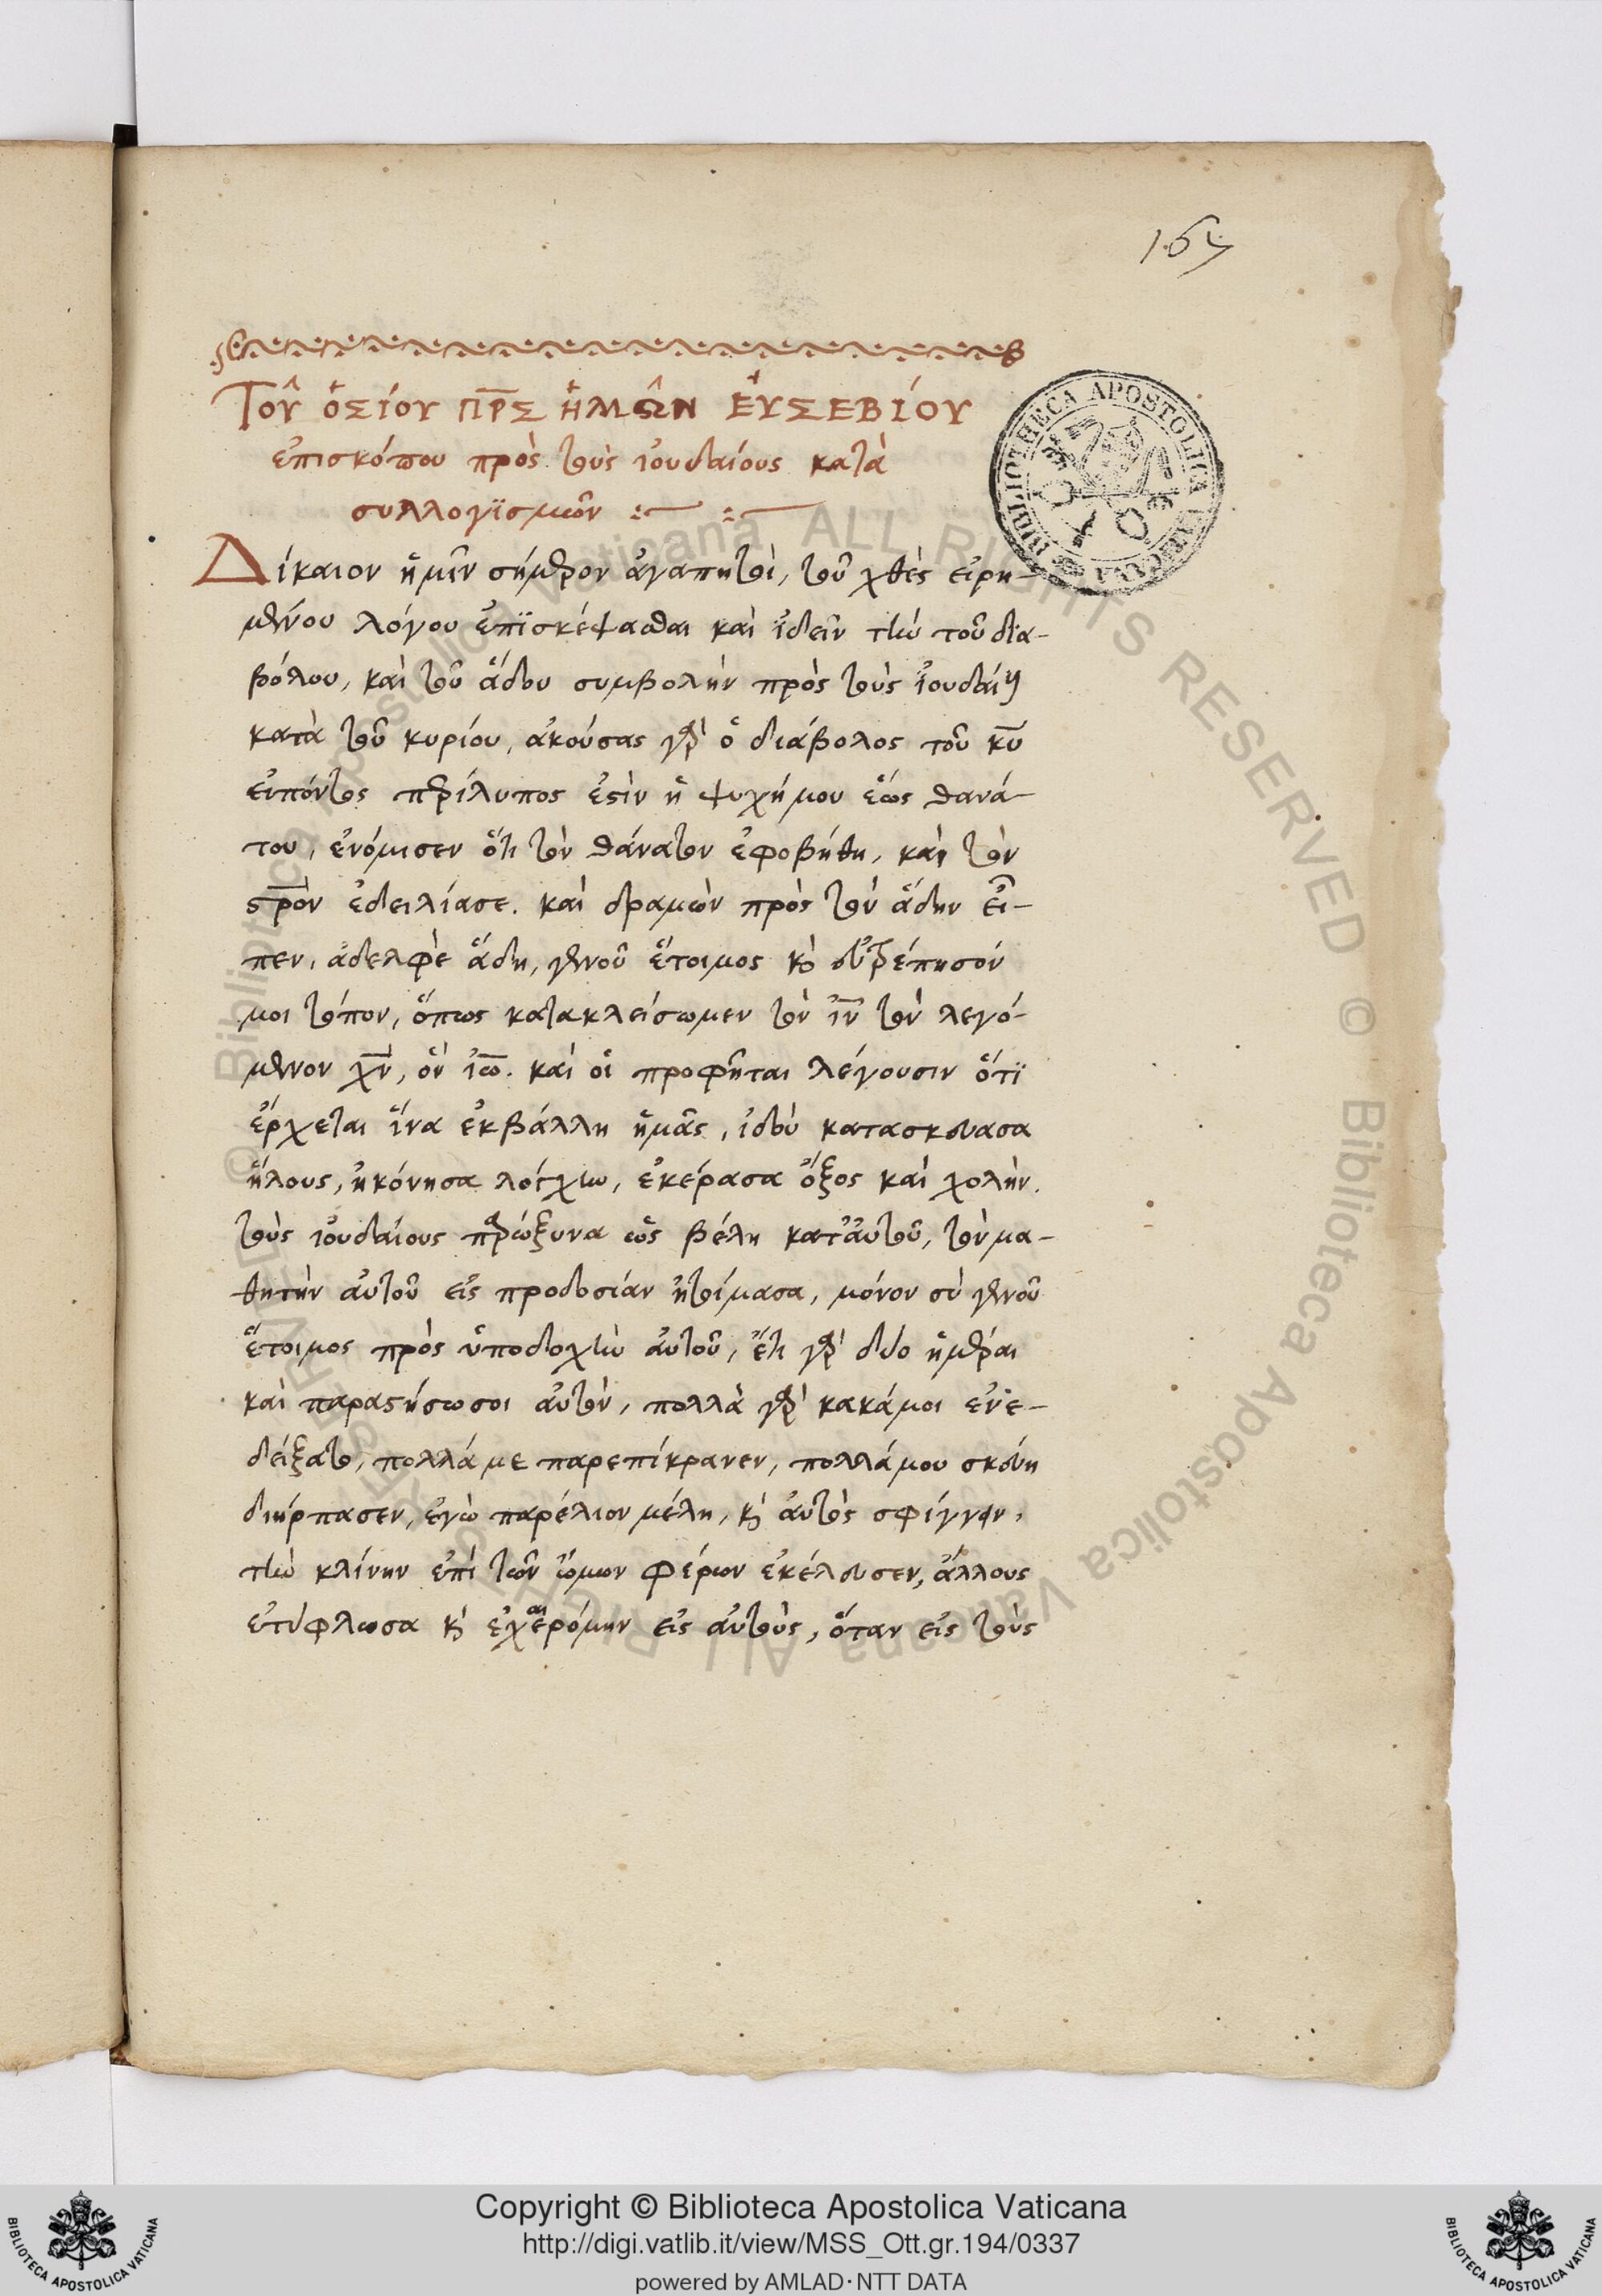 167
Τοῦ ὁσίου π̅ρ̅ς ἡμῶν Εὐσεβίου
ἐπισκόπου πρὸς τοὺς ἰουδαίους κατὰ
συλλογϊσμῶν :— :—
Δίκαιον ἡμῖν σήμερον ἀγαπητοὶ, τοῦ χθὲς εἰρη-
μένου λόγου ἐπϊσκέψασθαι καὶ ἰδεῖν τὴν τοῦ δϊα-
βόλου, καὶ τοῦ ἅδου συμβολὴν πρὸς τοὺς ἰουδαίους
κατὰ τοῦ κυρίου, ἀκούσας γὰρ ὁ διάβολος τοῦ κ̅υ
εἰπόντος περίλυπος ἐστὶν ἡ ψυχήμου ἕως θανά-
του, ἐνόμισεν ὅτι τὸν θάνατον ἐφοβήθη, καὶ τὸν
σ̅ρ̅ο̅ν ἐδειλίασε. καὶ δραμὼν πρὸς τὸν ἅδην εἶ-
πεν, ἀδελφὲ ἅδη, γενοῦ ἕτοιμος κὶ εὐτρέπησόν
μοι τόπον, ὅπως κατακλείσωμεν τὸν ἰ̅ν̅ τὸν λεγό-
μενον χ̅ν̅, ὃν ἰ̅ω̅. καὶ οἱ προφῆται λέγουσιν ὅτϊ
ἔρχεται ἵνα ἐκβάλλη ἡμᾶς, ἰδοὺ κατασκεύασα
ἥλους, ἠκόνησα λόγχην, ἐκέρασα ὄξος καὶ χολὴν.
τοὺς ἰουδαίους παρώξυνα ὡς βέλη κατ᾽ἀυτοῦ, τὸν μα-
θητὴν ἀυτοῦ εἰς προδοσίαν ἡτοίμασα, μόνον σὺ γενοῦ
ἕτοιμος πρὸς ὑποδοχὴν ἀυτοῦ, ἔτι γὰρ δύο ἡμέραι
καὶ παραστήσωσοι ἀυτὸν, πολλὰ γὰρ κακάμοι ἐνε-
δείξατο, πολλάμε παρεπίκρανεν, πολλάμου σκεύη
διήρπασεν, ἐγὼ παρέλιον μέλη, κὶ ἀυτὸς σφίγγων,
τὴν κλίνην ἐπὶ τῶν ὤμων φέρων ἐκέλευσεν, ἄλλους
ἐτύφλωσα κὶ ἐχαιρόμην εἰς ἀυτοὺς, ὅταν εἰς τοὺς
BIBLIOTHECA APOSTOLICA VATICANA
© Biblioteca Apostolica Vaticana ALL RIGHTS RESERVED © Biblioteca Apostolica Vaticana ALL RIGHTS RESERVED
Copyright © Biblioteca Apostolica Vaticana
http://digi.vatlib.it/view/MSS_Ott.gr.194/0337
powered by AMLAD·NTT DATA
BIBLIOTECA APOSTOLICA VATICANA
BIBLIOTECA APOSTOLICA VATICANA